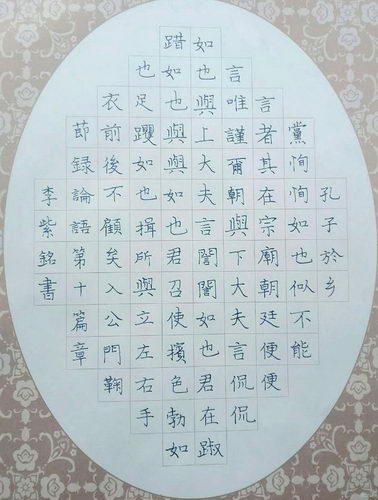 孔子於乡
黨恂恂如也似不能
言者其在宗廟朝廷便便
言唯謹爾朝與下大夫言侃侃
如也與上大夫言誾誾如也君在踧
踖如也與與如也君召使擯色勃如
也足躩如也揖所與立左右手
衣前後不顧矣入公門鞠
節録論語第十篇章
李紫銘書